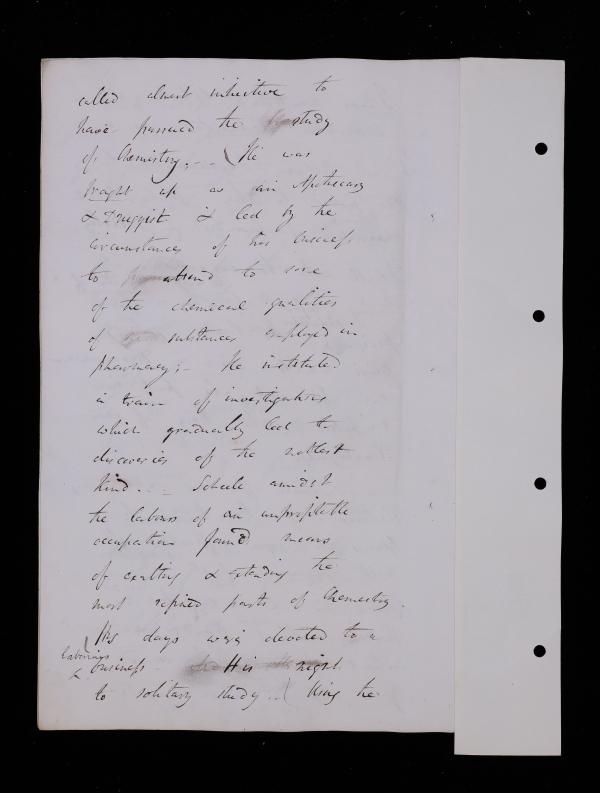 called almost instinctive to
have pursued the study
of Chemistry. – He was
brought up as an Apothecary
& Druggist & led by the
circumstances of his business
to attend to some
of the chemical qualities
of substances employed in
pharmacy; – He instituted
a train of investigations
which gradually led to
discoveries of the noblest
kind. – Scheele amidst
the labours of an unprofitable
occupation found means
of exalting & extending the
most refined parts of Chemistry.
His days were devoted to a
laborious
& business His night
to solitary study. – Using the